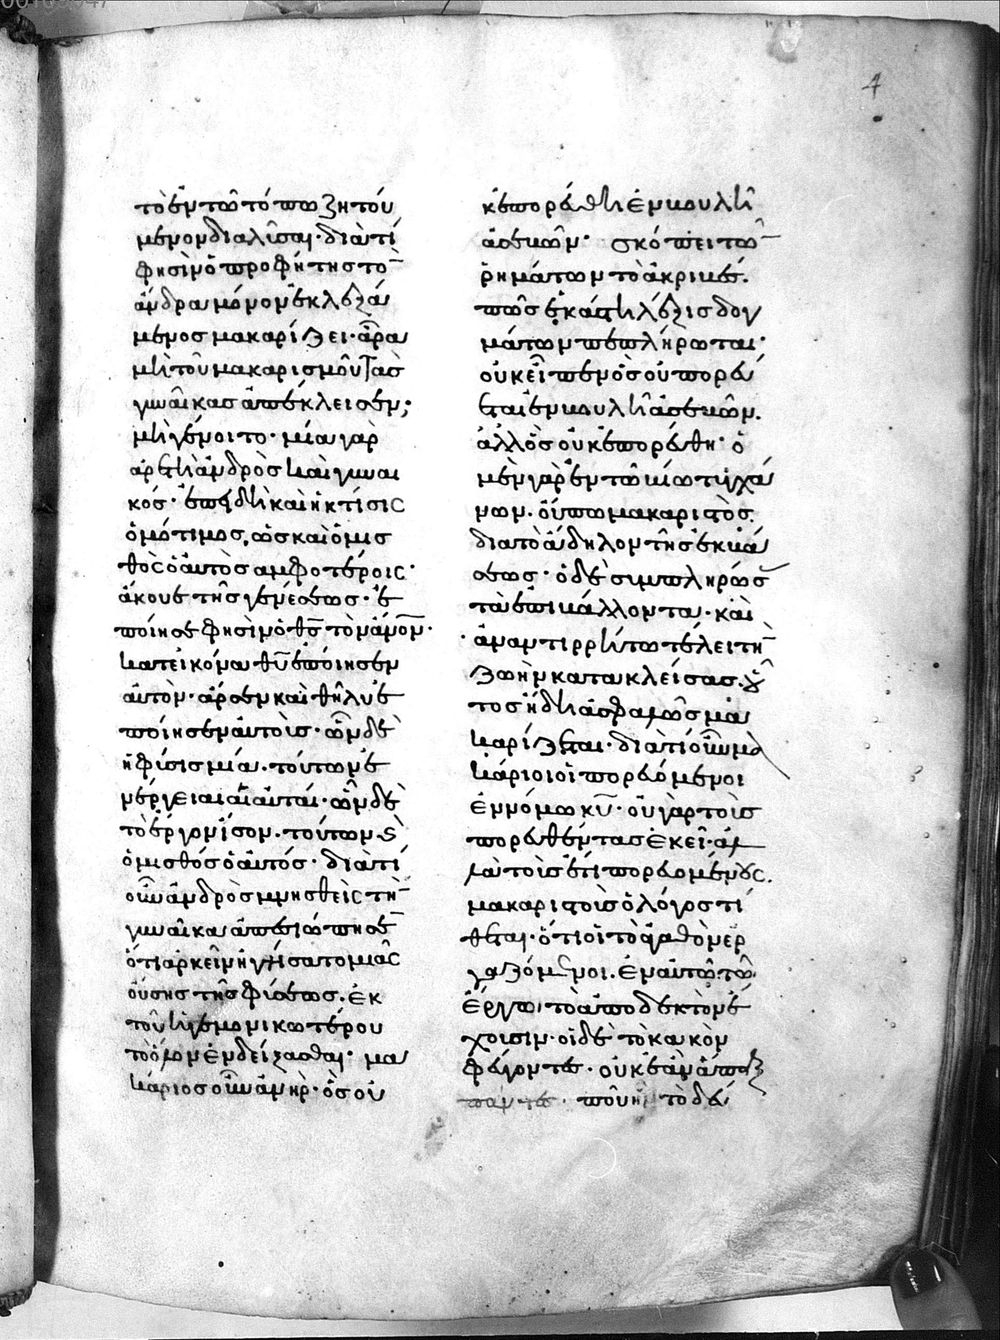 4
τὸ ἐν τῶ τόπω ζητού
μενον διαλῦσαι· διὰ τί
φησὶν ὁ προφήτης το̅
ἄνδρα μόνον ἐκλεξά
μενος μακαρίζει· ἆρα
μὴ τοῦ μακαρισμοῦ τὰς
γυναῖκας ἀπέκλεισεν;
μὴ γένοιτο· μία γὰρ
ἀρετὴ ἀνδρὸς καὶ γυναι
κός· ἐπειδὴ καὶ ἡ κτίσις
ὁμότιμος, ὡς καὶ ὁ μισ
θὸς ὁ αὐτὸς αμφοτέροις·
ἄκουε τῆς γενέσεως· ἐ
ποίησε φησὶν ὁ θς̅ τὸν ἄνον̅·
κατ εἰκόνα θυ̅ ἐποίησεν
αὐτὸν· ἄρσεν καὶ θῆλυ ἐ
ποίησεν αὐτοὺς· ὧν δὲ
ἡ φύσις μία. τούτων ἐ
νέργειαι αἱ αὐταί· ὧν δὲ
τὸ ἔργον ἴσον. τούτων ϗ
ὁ μισθὸς ὁ αὐτός· διὰ τί
οὖν ἀνδρὸς μνησθεὶς τη̅
γυναῖκα ἀπεσιώπησε̅
ὅτι ἀρκεῖν ἡγήσατο μιᾶς
οὔσης τῆς φύσεως. ἐκ
τοῦ ἡγεμονικωτέρου
τὸ ὅλον ἐνδείξασθαι· μα
κάριος οὖν ἀνὴρ· ὃς οὐ
κ ἐπορεύθη ἐν βουλῆ
ἀσεβῶν· σκόπει τω̅
ῥημάτων τὸ ἀκριβὲς.
πῶς ἑκάστη λέξις δογ
μάτων πεπλήρωται·
οὐκ εἶπεν ὃς οὐ πορεύ
εται ἐν βουλῆ ἀσεβῶν.
ἀλλ ὃς οὐκ ἐπορεύθη· ὁ
μὲν γὰρ ἐν τῶ βίω τυγχά
νων. οὔπω μακαριστὸς.
διὰ τὸ ἄδηλον τῆς ἐκβά
σεως· ὁ δὲ συμπληρώσ
τὰ ἐπιβάλλοντα· καὶ
ἀναντιρρήτω τέλει τη̅
ζωὴν κατακλείσας. οὗ
τος ἤδη ἀσφαλῶς μα
καρίζεται. διὰ τί οὖν μα
κάριοι οἱ πορευόμενοι
ἐν νόμω κυ̅· οὐ γὰρ τοὺς
πορευθέντας ἐκεῖ· ἀλ
λὰ τοὺς ἔτι πορευομένους.
μακαριστοὺς ὁ λόγος τί
θεται· ὅτι οἱ τὸ ἀγαθὸν ἐρ
γαζόμενοι. ἐν αὐτῶ τῶ
ἔργω, τὸ ἀποδεκτὸν ἔ
χουσιν· οἱ δὲ τὸ κακὸν
φεύγοντες· οὐκ ἐὰν ἅπαξ
που τὸ δεύ